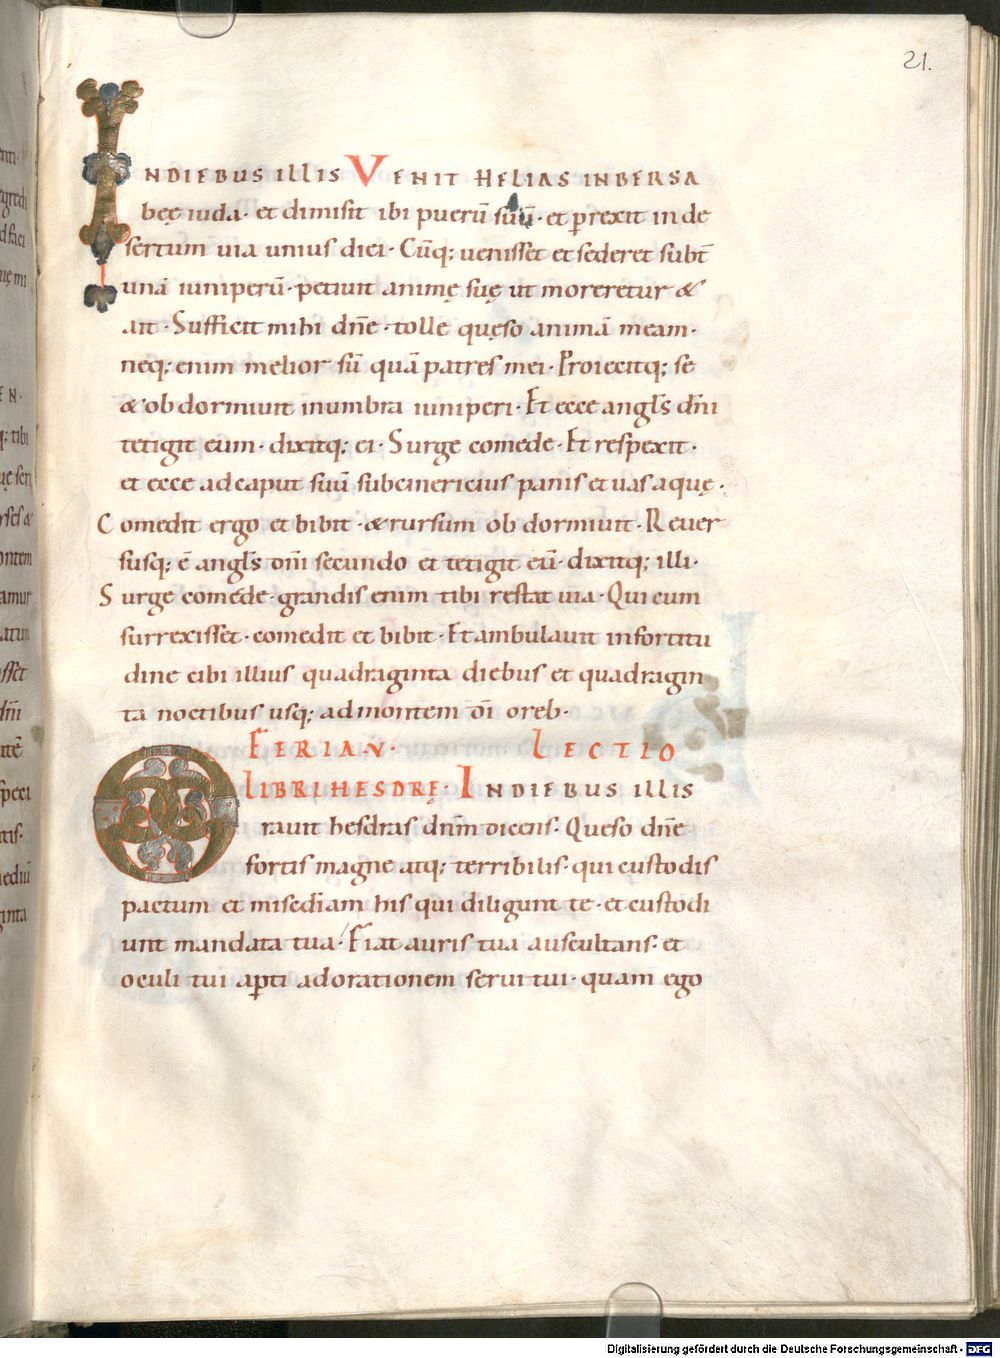 21.
INDIEBUS ILLIS VENIT HELIAS INBERSA
bęę iuda · et dimisit ibi puerū suū · et prexit in de
sertum uia unius diei · Cūq; uenisset et sederet subt̄
unā iuniperū · petiuit animę suę ut moreretur &
ait · Sufficit mihi dn̄e · tolle quęso animā meam ·
neq; enim melior sū quā patres mei · Proiecitq; se
& obdormiuit inumbra iuniperi · Et ecce angl̄s dn̄i
tetigit eum · dixitq; ei · Surge comede · Et respexit ·
et ecce ad caput suū subcinericius panis et uas aquę ·
Comedit ergo et bibit · & rursum obdormiuit · Reuer
susq; ē angl̄s dn̄i secundo et tetigit eū · dixitq; illi ·
Surge comede · grandis enim tibi restat uia · Qui cum
surrexisset · comedit et bibit · Et ambulauit infortitu
dine cibi illius quadraginta diebus et quadragin
ta noctibus usq; ad montem dī oreb ·
FERIA · V · LECTIO
LIBRI HESDRĘ · INDIEBUS ILLIS
Orauit hesdras dnm̄ dicens · Queso dn̄e
fortis magne atq; terribilis · qui custodis
pactum et misediam his qui diligunt te · et custodi
unt mandata tua · Fiat auris tua auscultans · et
oculi tui apti adorationem serui tui · quam ego
Digitalisierung gefördert durch die Deutsche Forschungsgemeinschaft - DFG